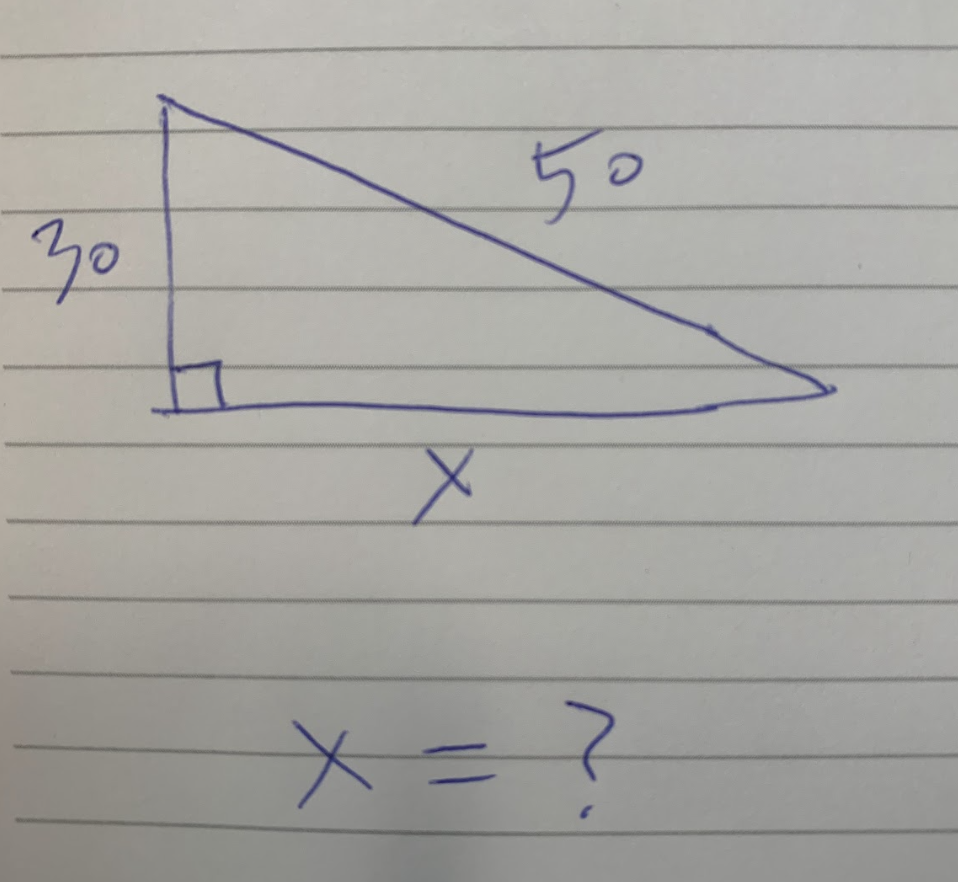 50
30
x
x = ?